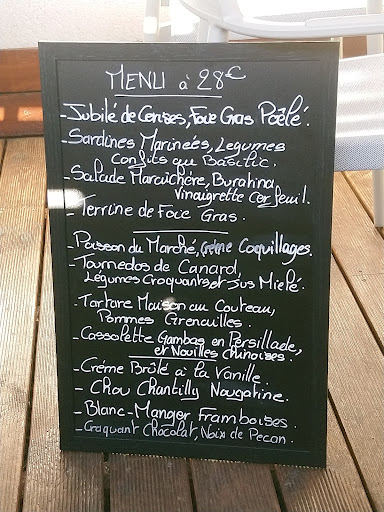 MENU à 28€
- Jubilé de Cerises, Foie Gras Poêlé.
- Sardines Marinées, Légumes
Confits au Basilic.
- Salade Maraîchère, Buratina,
Vinaigrette Cerfeuil.
- Terrine de Foie Gras.
- Poisson du Marché, Crème Coquillages.
- Tournedos de Canard,
Légumes Croquants et Jus Miélé.
- Tartare Maison au Couteau,
Pommes Grenailles.
- Cassolette Gambas en Persillade,
et Nouilles Chinoises.
- Créme Brûlé a la Vanille.
- Chou Chantilly Nougatine.
- Blanc-Manger Framboises.
- Craquant Chocolat, Noix de Pecan.